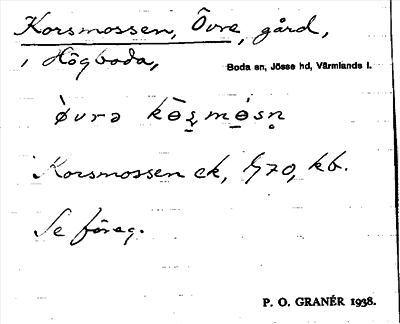 Korsmossen, Övre, gård,
i Högboda,
Boda sn, Jösse hd, Värmlands l.
Korsmossen ek, 1/1 70, kb.
Se föreg.
P. O. GRANÉR 1938.